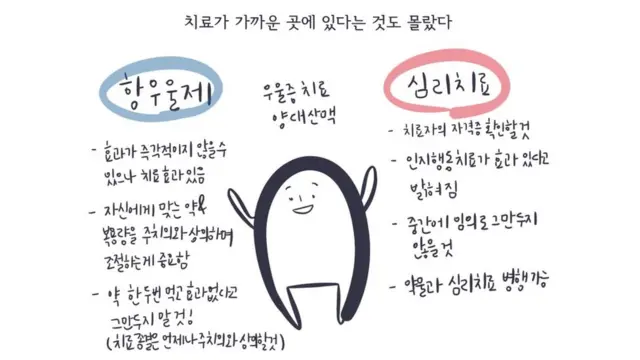 치료가 가까운 곳에 있다는 것도 몰랐다
항우울제
우울증 치료
양대산맥
심리치료
- 효과가 즉각적이지 않을 수
있으나 치료효과 있음
- 자신에게 맞는 약&
복용량을 주치의와 상의하며
조절하는게 중요함
- 약 한두번 먹고 효과없다고
그만두지 말 것!
(치료종결은 언제나 주치의와 상의할것)
- 치료자의 자격증 확인할것
- 인지행동치료가 효과 있다고
밝혀짐
- 중간에 임의로 그만두지
않을것
- 약물과 심리치료 병행 가능